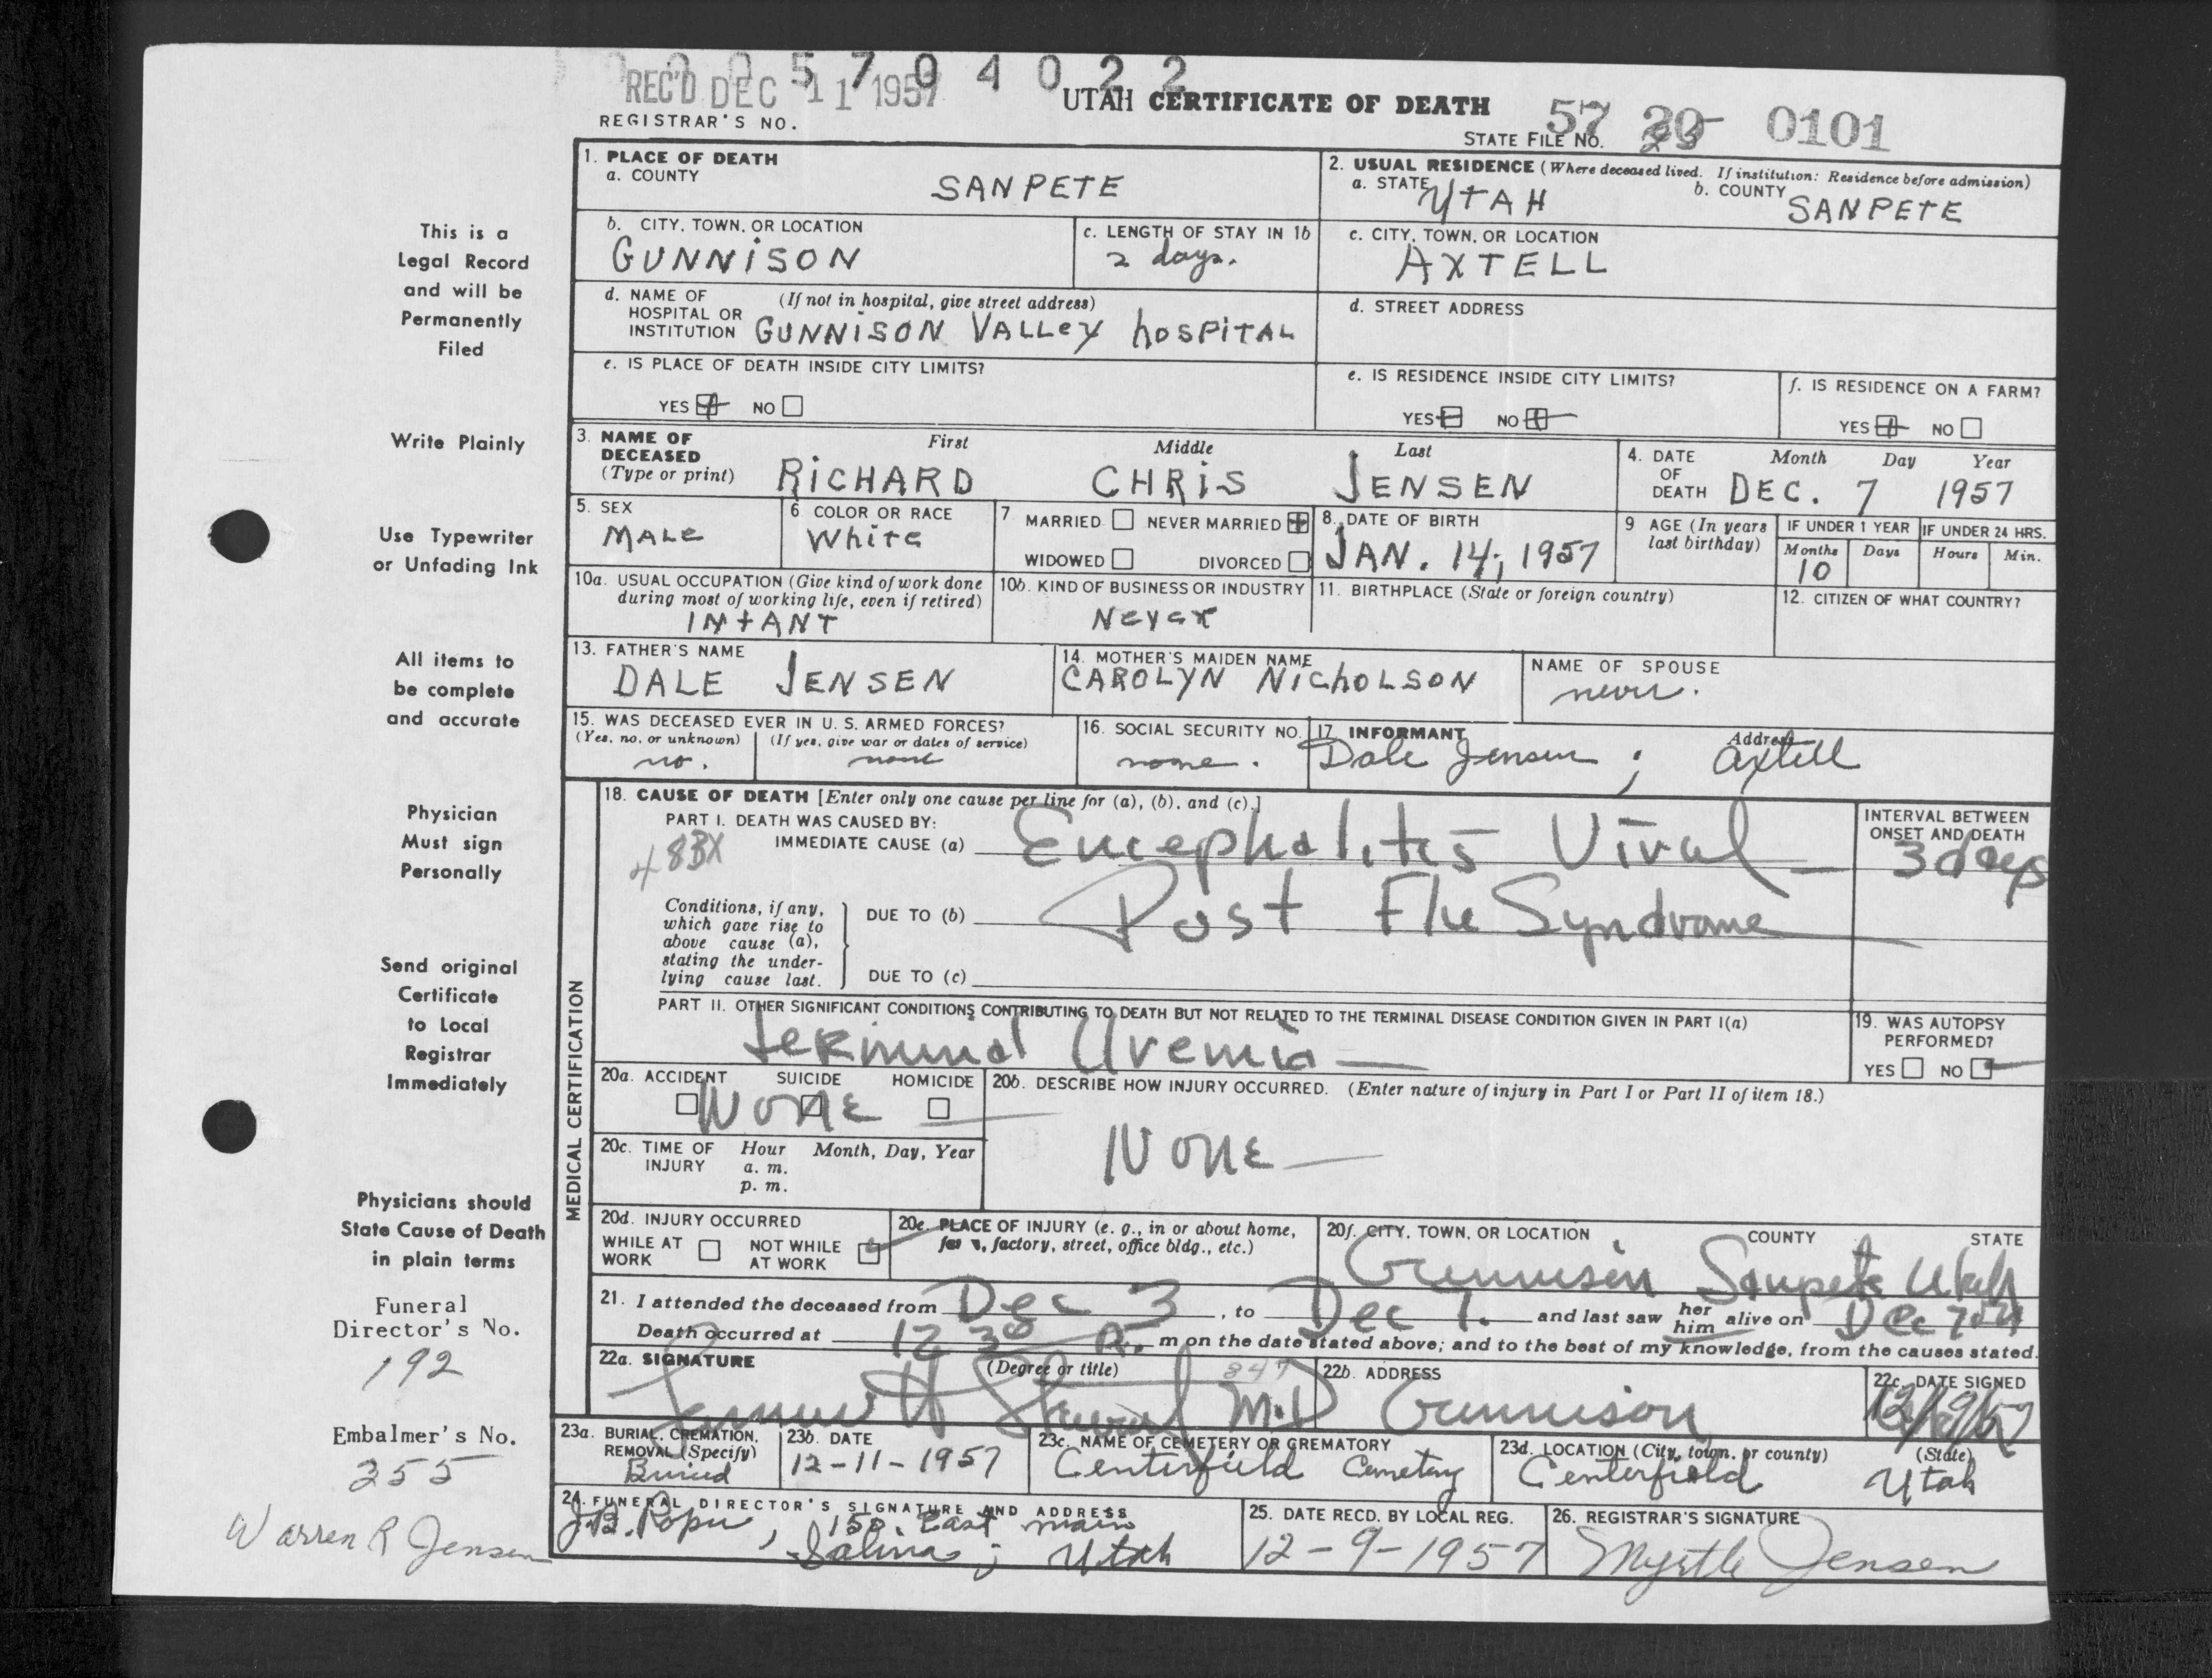 0005704022
REC'D DEC 11 1957
UTAH CERTIFICATE OF DEATH
REGISTRAR'S NO.
STATE FILE NO. 57 20 0101
This is a
Legal Record
and will be
Permanently
Filed
Write Plainly
Use Typewriter
or Unfading Ink
All items to
be complete
and accurate
Physician
Must sign
Personally
Send original
Certificate
to Local
Registrar
Immediately
Physicians should
State Cause of Death
in plain terms
Funeral
Director's No.
192
Embalmer's No.
355
Warren R Jensen
1. PLACE OF DEATH
a. COUNTY
SANPETE
2. USUAL RESIDENCE (Where deceased lived. If institution: Residence before admission)
a. STATE UTAH
b. COUNTY SANPETE
b. CITY, TOWN, OR LOCATION
GUNNiSON
c. LENGTH OF STAY IN 1b
2 days.
c. CITY, TOWN, OR LOCATION
AXTELL
d. NAME OF HOSPITAL OR INSTITUTION
(If not in hospital, give street address)
GUNNiSON VALLeY hOSPiTAL
d. STREET ADDRESS
e. IS PLACE OF DEATH INSIDE CITY LIMITS?
YES NO
e. IS RESIDENCE INSIDE CITY LIMITS?
YES NO
f. IS RESIDENCE ON A FARM?
YES NO
3. NAME OF DECEASED
(Type or print)
First Middle Last
RiCHARD CHRiS JENSEN
4. DATE OF DEATH
Month Day Year
DEC. 7 1957
5. SEX
MALe
6 COLOR OR RACE
White
7 MARRIED NEVER MARRIED
WIDOWED DIVORCED
8. DATE OF BIRTH
JAN. 14, 1957
9 AGE (In years last birthday)
IF UNDER 1 YEAR IF UNDER 24 HRS.
Months Days Hours Min.
10
10a. USUAL OCCUPATION (Give kind of work done
during most of working life, even if retired)
INfANT
10b. KIND OF BUSINESS OR INDUSTRY
NeVer
11. BIRTHPLACE (State or foreign country)
12. CITIZEN OF WHAT COUNTRY?
13. FATHER'S NAME
DALE JENSEN
14. MOTHER'S MAIDEN NAME
CAROLYN NichOLSON
NAME OF SPOUSE
never.
15. WAS DECEASED EVER IN U. S. ARMED FORCES?
(Yes, no, or unknown) (If yes, give war or dates of service)
no. none
16. SOCIAL SECURITY NO.
none.
17. INFORMANT Address
Dale Jensen ; Axtell
MEDICAL CERTIFICATION
18. CAUSE OF DEATH [Enter only one cause per line for (a), (b), and (c).]
PART I. DEATH WAS CAUSED BY:
IMMEDIATE CAUSE (a) Encephalitis Viral
483X
INTERVAL BETWEEN
ONSET AND DEATH
3 days
Conditions, if any,
which gave rise to
above cause (a),
stating the under-
lying cause last.
DUE TO (b) Post Flu Syndrome
DUE TO (c)
PART II. OTHER SIGNIFICANT CONDITIONS CONTRIBUTING TO DEATH BUT NOT RELATED TO THE TERMINAL DISEASE CONDITION GIVEN IN PART I(a)
Terminal Uremia
19. WAS AUTOPSY
PERFORMED?
YES NO
20a. ACCIDENT SUICIDE HOMICIDE
None
20b. DESCRIBE HOW INJURY OCCURRED. (Enter nature of injury in Part I or Part II of item 18.)
None
20c. TIME OF INJURY
Hour Month, Day, Year
a. m.
p. m.
20d. INJURY OCCURRED
WHILE AT WORK NOT WHILE AT WORK
20e. PLACE OF INJURY (e. g., in or about home,
factory, street, office bldg., etc.)
20f. CITY, TOWN, OR LOCATION COUNTY STATE
Gunnison Sanpete Utah
21. I attended the deceased from Dec 3, to Dec 7. and last saw her him alive on Dec 7
Death occurred at 12 30 m on the date stated above; and to the best of my knowledge, from the causes stated.
22a. SIGNATURE (Degree or title)
M.D
847
22b. ADDRESS
Gunnison
22c. DATE SIGNED
12/9/57
23a. BURIAL, CREMATION,
REMOVAL (Specify)
Buried
23b. DATE
12-11-1957
23c. NAME OF CEMETERY OR CREMATORY
Centerfield Cemetery
23d. LOCATION (City, town, or county) (State)
Centerfield Utah
24. FUNERAL DIRECTOR'S SIGNATURE AND ADDRESS
150. East main
Salina; Utah
25. DATE RECD. BY LOCAL REG.
12-9-1957
26. REGISTRAR'S SIGNATURE
Myrtle Jensen